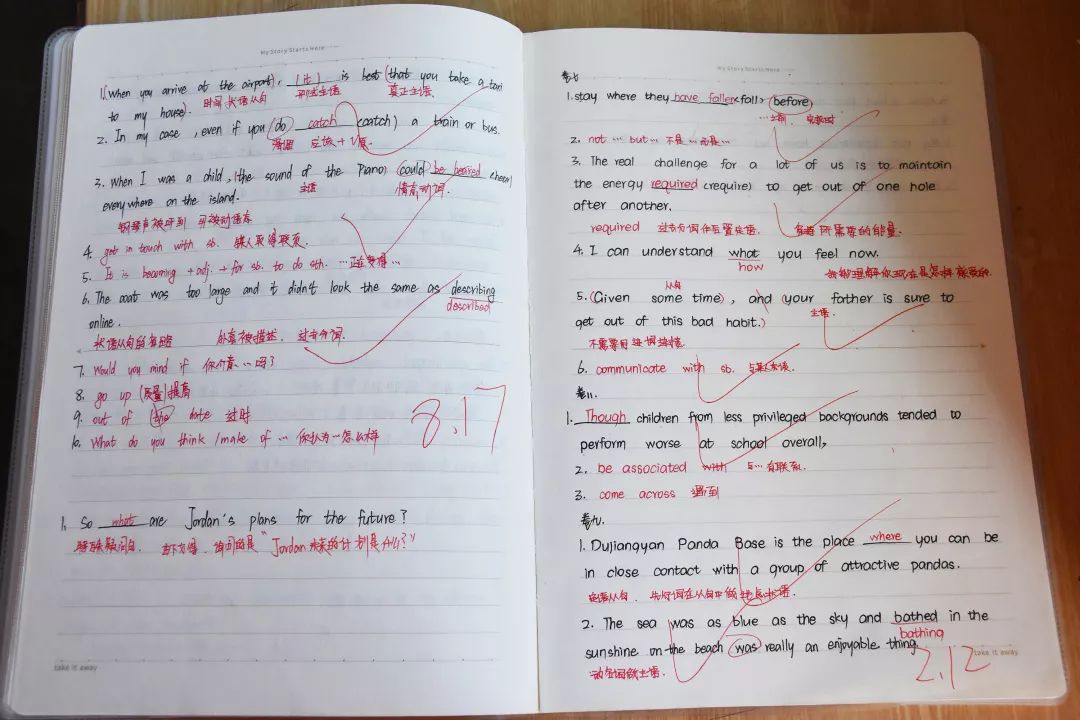 My Story Starts Here
1. (When you arrive at the airport), (it) is best (that you take a taxi
时间状语从句 形式主语 真正主语
to my house).
2. In my case, even if you (do) catch (catch) a train or bus.
强调 应该+V原
3. When I was a child, (the sound of the piano) (could) be heared (hear)
主语 情态动词.
everywhere on the island.
钢琴声被听到 用被动语态
4. get in touch with sb. 与某人取得联系.
5. It is becoming +adj. + for sb. to do sth. …正在变得…
6. The coat was too large and it didn't look the same as describing
described
online.
状语从句的省略 外套被描述. 过去分词.
7. Would you mind if 你介意…吗?
8. go up (质量)提高
9. out of the date 过时
10. What do you think /make of … 你认为…怎么样
8.17
1. So what are Jordan's plans for the future?
特殊疑问句. 询问的是"Jordan 未来的计划是什么?"
take it away
My Story Starts Here
卷七
1. stay where they have fallen(fall) before
完成时
2. not … but … 不是…而是…
3. The real challenge for a lot of us is to maintain
the energy required (require) to get out of one hole
after another.
required 过去分词作后置定语. 所需要的能量.
4. I can understand what you feel now.
how
我能理解你现在是怎样感受的.
从句
5. (Given some time), and (your father is sure to
主语.
get out of this bad habit.)
不需要用连词连接.
6. communicate with sb. 与某人交谈.
卷八.
1. Though children from less privileged backgrounds tended to
perform worse at school overall,
2. be associated with 与…有联系.
3. come across 遇到
卷九.
1. Dujiangyan Panda Base is the place where you can be
in close contact with a group of attractive pandas.
定语从句. 先行词在从句中做地点状语.
2. The sea was as blue as the sky and bathed in the
bathing
sunshine on the beach was really an enjoyable thing.
动名词做主语.
2.12
take it away